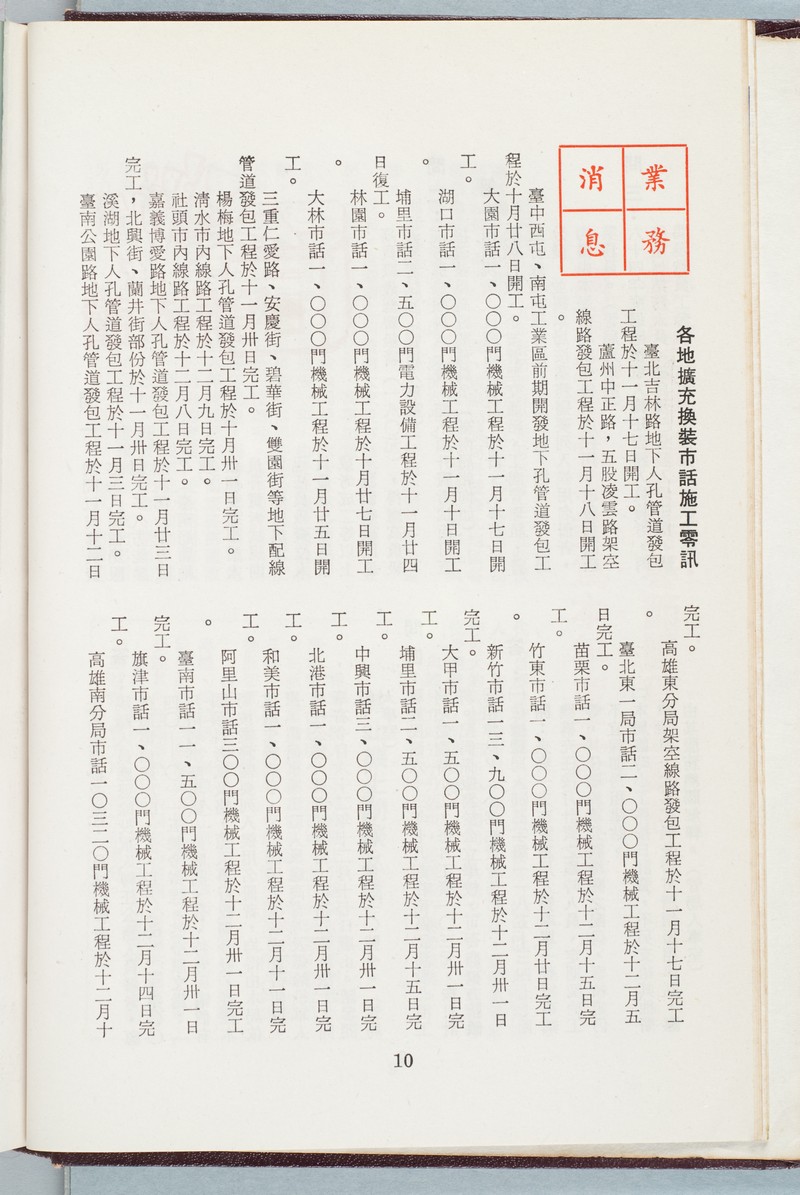 業務
消息
各地擴充換裝市話施工零訊
臺北吉林路地下人孔管道發包
工程於十一月十七日開工。
蘆州中正路，五股凌雲路架空
線路發包工程於十一月十八日開工
。
臺中西屯、南屯工業區前期開發地下孔管道發包工
程於十月廿八日開工。
大園市話一、〇〇〇門機械工程於十一月十七日開
工。
湖口市話一、〇〇〇門機械工程於十一月十日開工
。
埔里市話二、五〇〇門電力設備工程於十一月廿四
日復工。
林園市話一、〇〇〇門機械工程於十月廿七日開工
。
大林市話一、〇〇〇門機械工程於十一月廿五日開
工。
三重仁愛路、安慶街、碧華街、雙園街等地下配線
管道發包工程於十一月卅日完工。
楊梅地下人孔管道發包工程於十月卅一日完工。
清水市內線路工程於十二月九日完工。
社頭市內線路工程於十二月八日完工。
嘉義博愛路地下人孔管道發包工程於十一月廿三日
完工，北興街、蘭井街部份於十一月卅日完工。
溪湖地下人孔管道發包工程於十一月三日完工。
臺南公園路地下人孔管道發包工程於十一月十二日
完工。
高雄東分局架空線路發包工程於十一月十七日完工
。
臺北東一局市話二、〇〇〇門機械工程於十二月五
日完工。
苗栗市話一、〇〇〇門機械工程於十二月十五日完
工。
竹東市話一、〇〇〇門機械工程於十二月廿日完工
。
新竹市話一三、九〇〇門機械工程於十二月卅一日
完工。
大甲市話一、五〇〇門機械工程於十二月卅一日完
工。
埔里市話二、五〇〇門機械工程於十二月十五日完
工。
中興市話三、〇〇〇門機械工程於十二月卅一日完
工。
北港市話一、〇〇〇門機械工程於十二月卅一日完
工。
和美市話一、〇〇〇門機械工程於十二月十一日完
工。
阿里山市話三〇〇門機械工程於十二月卅一日完工
。
臺南市話一一、五〇〇門機械工程於十二月卅一日
完工。
旗津市話一、〇〇〇門機械工程於十二月十四日完
工。
高雄南分局市話一〇三二〇門機械工程於十二月十
10